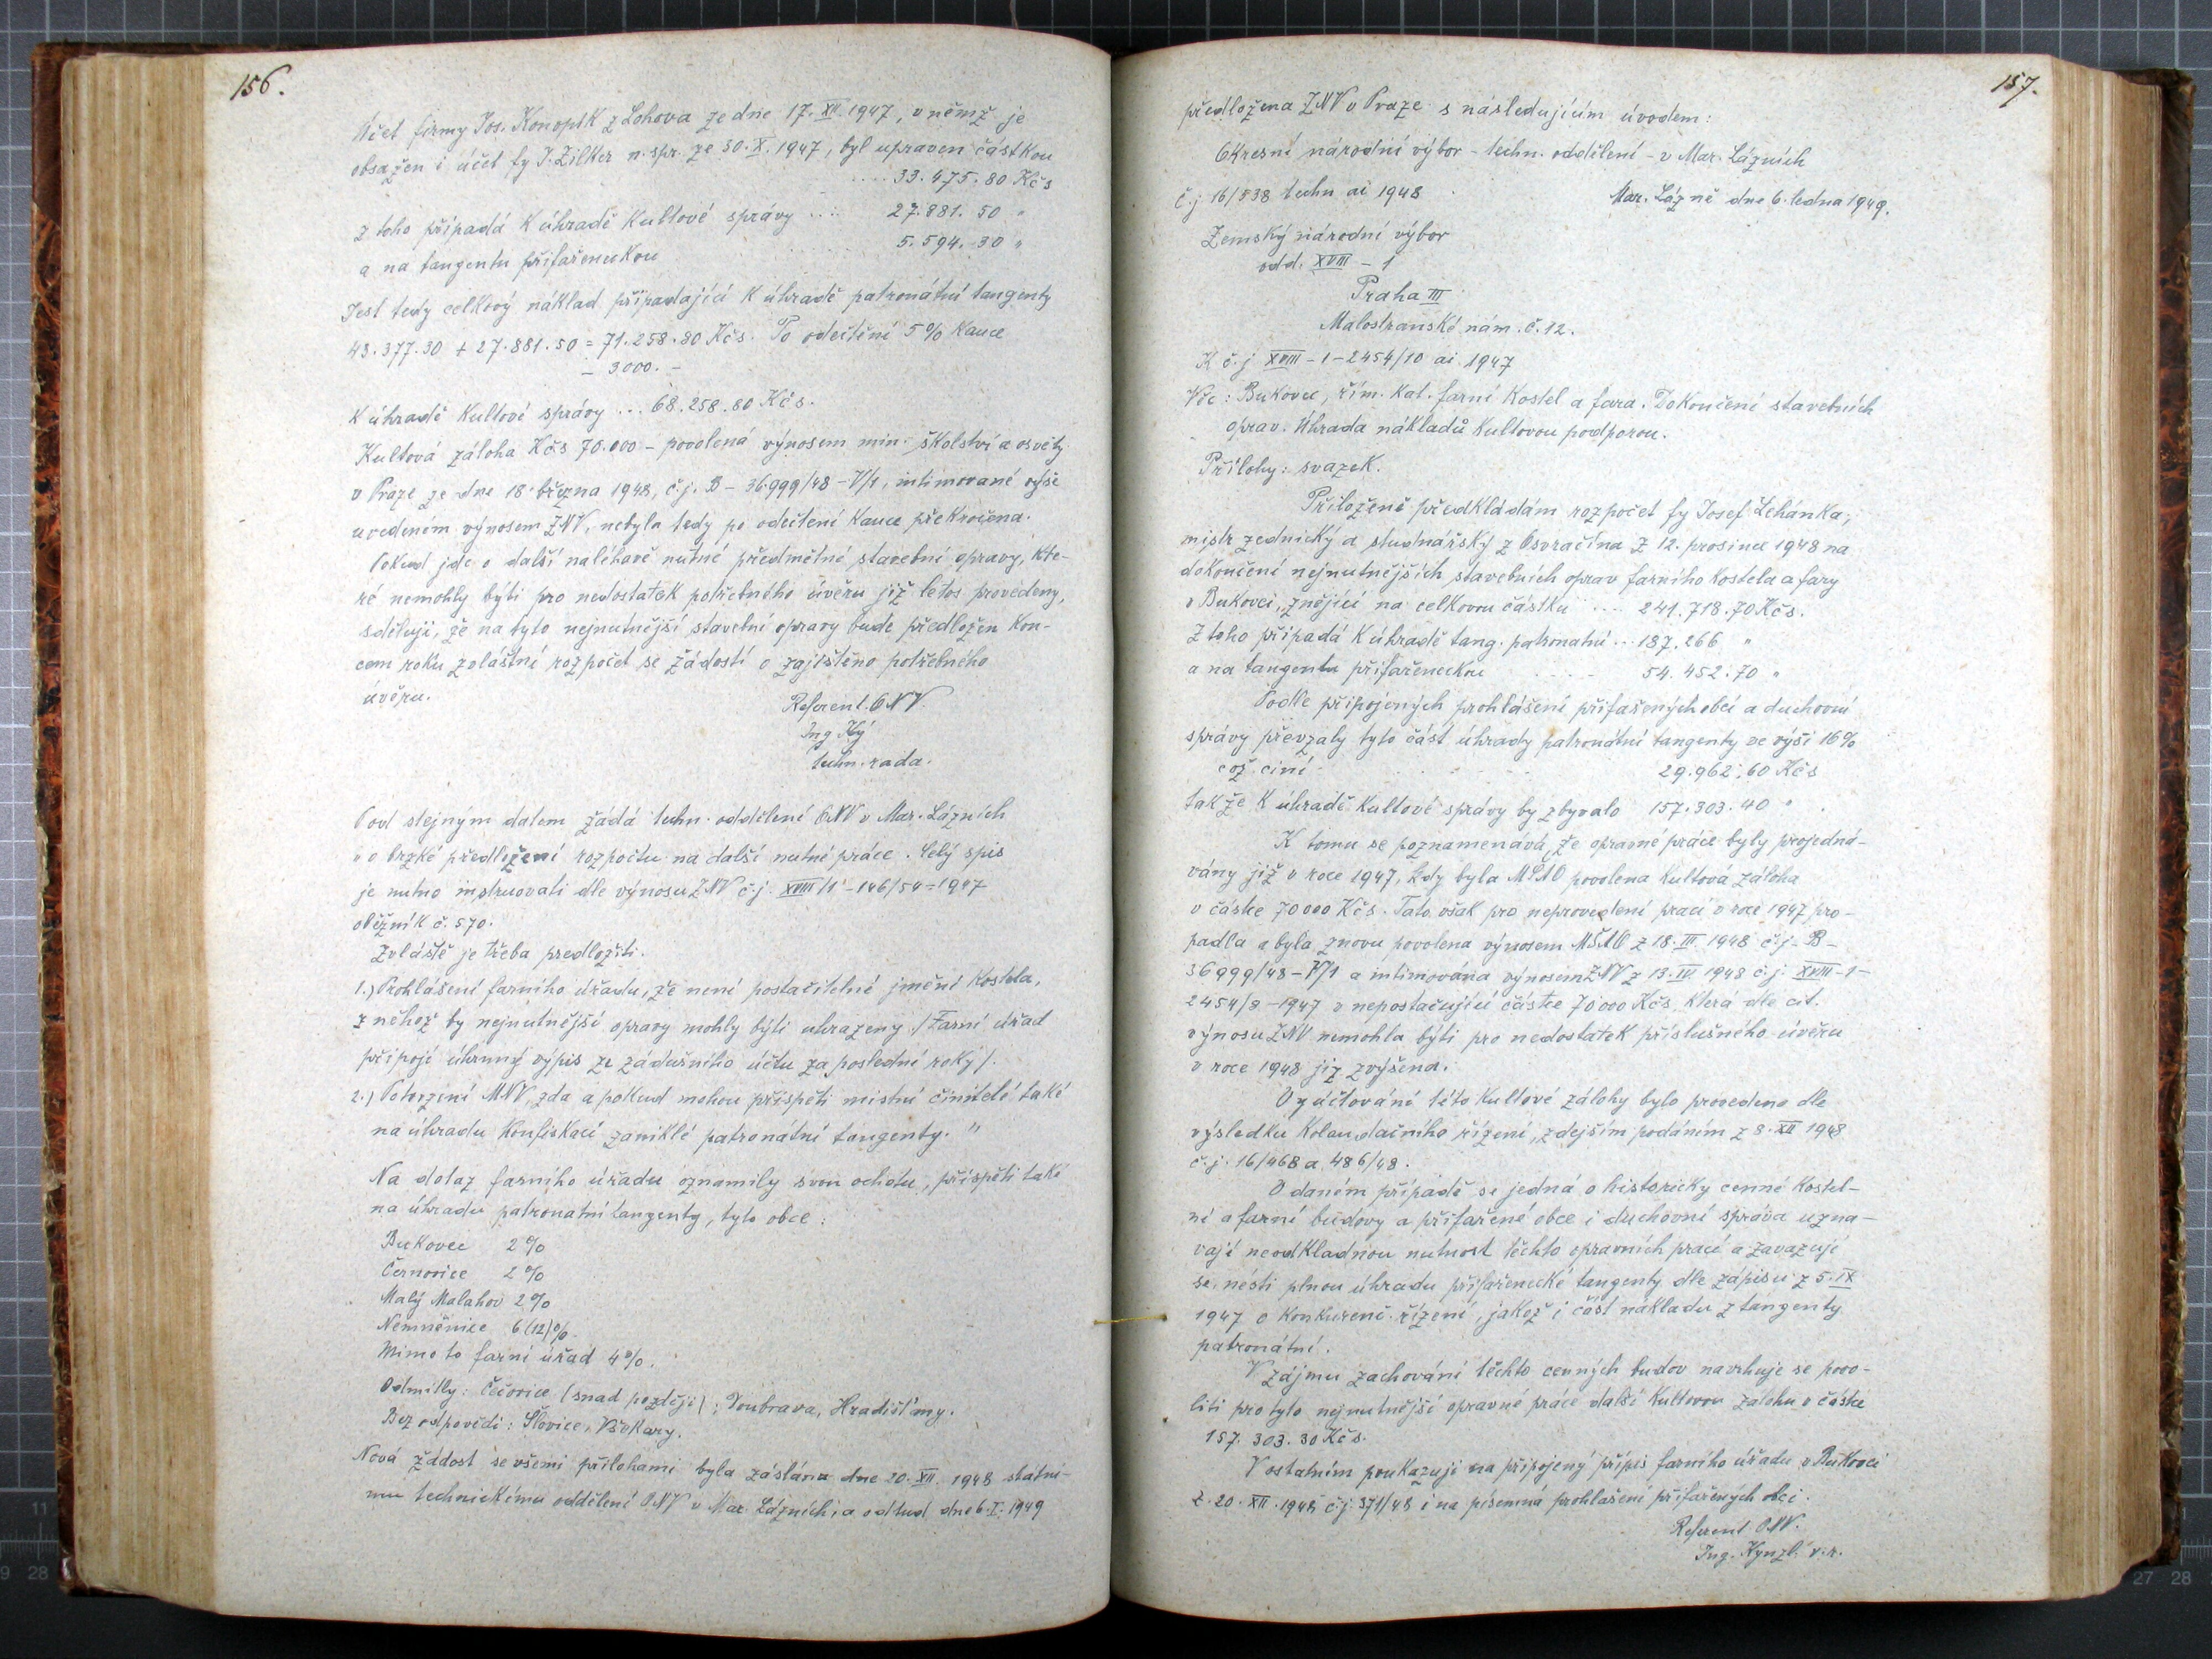 156.
Účet firmy Jos. Konopík z Lohova ze dne 17. XII. 1947, v němž je
obsažen i účet fy J. Zilker n. spr. ze 30. X. 1947, byl upraven částkou
.... 33.475.80 Kčs
z toho připadá k úhradě kultové správy .... 27.881.50 "
a na tangentu přifařeneckou ..... 5.594.30 "
Jest tedy celkový náklad připadající k úhradě patronátní tangenty
43.377.30 + 27.881.50 = 71.258.80 Kčs. Po odečtení 5% kauce
– 3000.–
k úhradě kultové správy ... 68.258.80 Kčs.
Kultová záloha Kčs 70.000 – povolená výnosem min. školství a osvěty
v Praze ze dne 18. března 1948, č.j. B – 36.999/48 – V/1, intimované výše
uvedeném výnosem ZNV, nebyla tedy po odečtení kauce překročena.
Pokud jde o další naléhavě nutné předmětné stavební opravy, kte-
ré nemohly býti pro nedostatek potřebného úvěru již letos provedeny,
sděluji, že na tyto nejnutnější stavební opravy bude předložen kon-
cem roku zvláštní rozpočet se žádostí o zajištěno potřebného
úvěru.
Referent ONV.
Ing Ký
techn. rada.
Pod stejným datem žádá techn. oddělení ONV v Mar. Lázních
" o brzké předložení rozpočtu na další nutné práce. Celý spis
je nutno instruovati dle výnosu ZNV č.j. XVIII/1 – 146/54 – 1947
oběžník č. 570.
Zvláště je třeba předložiti.
1.) Prohlášení farního úřadu, že není postačitelné jmění kostela,
z něhož by nejnutnější opravy mohly býti uhrazeny. /Farní úřad
připojí úhrnný výpis ze zádušního účtu za poslední roky/.
2.) Potvrzení MNV, zda a pokud mohou přispěti místní činitelé také
na úhradu konfiskací zaniklé patronátní tangenty. "
Na dotaz farního úřadu oznamily svou ochotu, přispěti také
na úhradu patronatní tangenty, tyto obce:
Bukovec 2%
Černovice 2%
Malý Malahov 2%
Němněnice 6 (12)%
Mimo to farní úřad 4%.
Odmítly: Čečovice (snad později); Doubrava, Hradišťany.
Bez odpovědi: Šlovice, Všekary.
Nová žádost se všemi přílohami byla zaslána dne 20. XII. 1948 státní-
mu technickému oddělení ONV v Mar. Lázních, a odtud dne 6. I. 1949
157.
předložena ZNV v Praze s následujícím úvodem:
Okresní národní výbor – techn. oddělení – v Mar. Lázních
č.j. 16/538 techn ai 1948 Mar. Lázně dne 6. ledna 1949.
Zemský národní výbor
odd. XVIII – 1
Praha III
Malostranské nám. č. 12.
K č.j. XVIII – 1 – 2454/10 ai 1947
Věc: Bukovec, řím. kat. farní kostel a fara. Dokončení stavebních
oprav. Úhrada nákladů kultovou podporou.
Přílohy: svazek.
Přiloženě předkládám rozpočet fy Josef Lehánka,
mistr zednický a studnařský z Osvračína z 12. prosince 1948 na
dokončení nejnutnějších stavebních oprav farního kostela a fary
v Bukovci, znějící na celkovou částku .... 241.718.70 Kčs.
Z toho připadá k úhradě tang. patronatní ... 187.266 "
a na tangentu přifařeneckou .... 54.452.70 "
Podle připojených prohlášení přifařených obcí a duchovní
správy převzaly tyto část úhrady patronátní tangenty ve výši 16%
což činí ...... 29.962.60 Kčs
takže k úhradě kultové správy by zbyvalo 157.303.40 " .
K tomu se poznamenává, že opravné práce byly projedná-
vány již v roce 1947, kdy byla MŠAO povolena kultová záloha
v částce 70000 Kčs. Tato však pro neprovedení prací v roce 1947 pro-
padla a byla znovu povolena výnosem MŠAO z 18. III. 1948 č.j. B –
36999/48 – V/1 a intimována výnosem ZNV z 13. IV. 1948 č.j. XVIII – 1 –
2454/8 – 1947 v nepostačující částce 70000 Kčs, která dle cit.
výnosu ZNV nemohla býti pro nedostatek příslušného úvěru
v roce 1948 již zvýšena.
Vyúčtování této kultové zálohy bylo provedeno dle
výsledku kolaudačního řízení, zdejším podáním z 8. XII 1948
č.j. 16/468 a 486/48.
V daném případě se jedná o historicky cenné kostel-
ní a farní budovy a přifařené obce i duchovní správa uzna-
vají neodkladnou nutnost těchto opravních prací a zavazují
se, nésti plnou úhradu přifařenecké tangenty dle zápisu z 5. IX
1947 o konkurenč. řízení, jakož i část nákladu z tangenty
patronátní.
V zájmu zachování těchto cenných budov navrhuje se povo-
liti pro tyto nejnutnější opravné práce další kultovou zálohu v částce
157.303.30 Kčs.
V ostatním poukazuji na připojený přípis farního úřadu v Bukovci
z 20. XII. 1948 č.j. 371/48 i na písemná prohlašení přifařených obcí.
Referent ONV.
Ing. Kynzl. v.r.